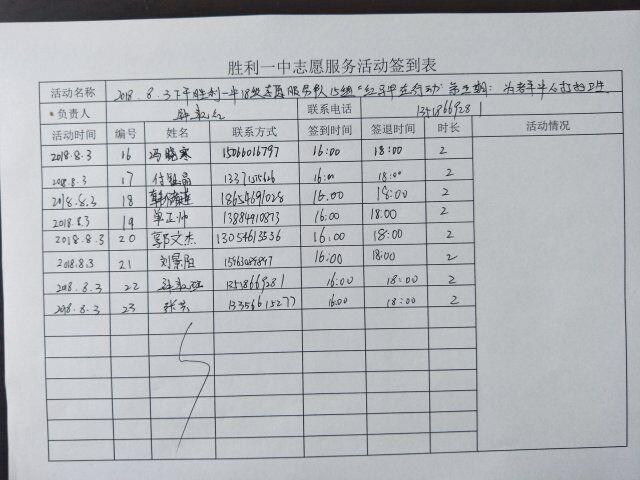 胜利一中志愿服务活动签到表
活动名称 2018.8.3下午胜利一中18级志愿服务队15组“红马甲在行动”第三期：为老年人打扫卫生
负责人 联系电话
活动时间 编号 姓名 联系方式 签到时间 签退时间 时长 活动情况
2018.8.3 16 冯晓寒 15066016797 16:00 18:00 2
2018.8.3 17 16:00 18:00 2
2018.8.3 18 18654691028 16:00 18:00 2
2018.8.3 19 单正帅 13884910873 16:00 18:00 2
2018.8.3 20 郭文杰 13054613536 16:00 18:00 2
2018.8.3 21 刘景阳 16:00 18:00 2
2018.8.3 22 16:00 18:00 2
2018.8.3 23 13356615277 16:00 18:00 2